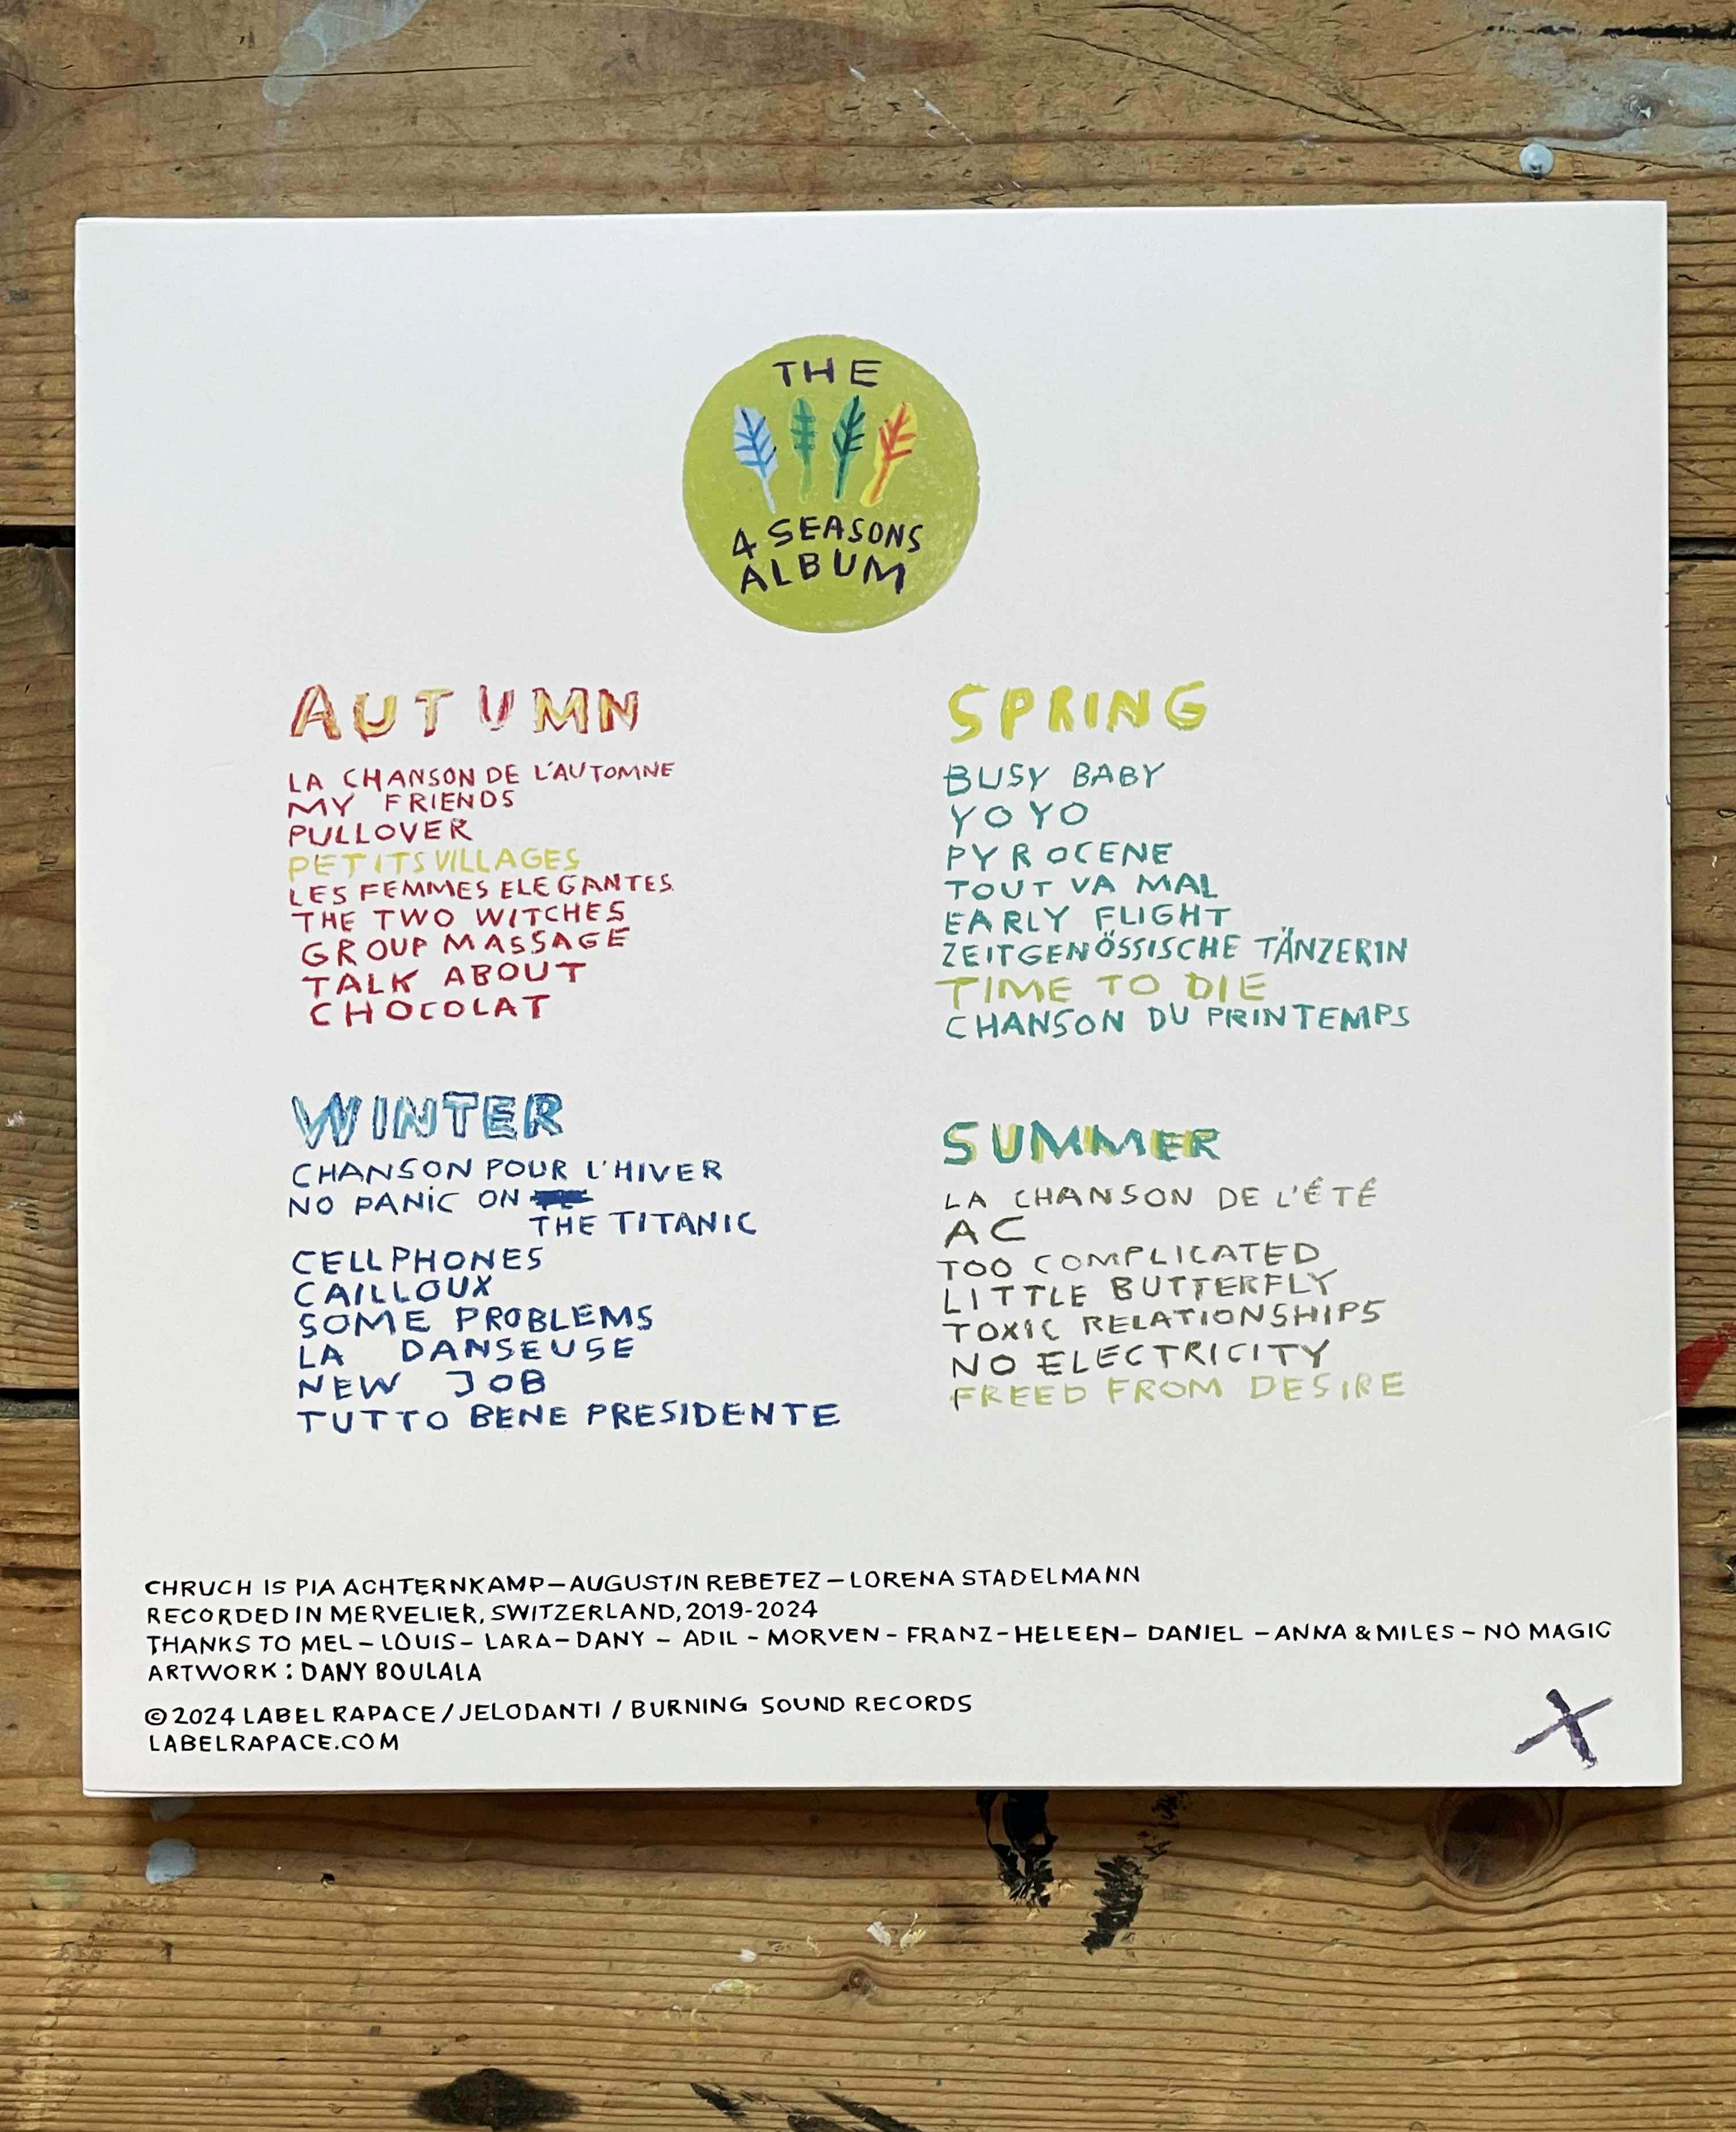 THE
4 SEASONS
ALBUM
AUTUMN
LA CHANSON DE L'AUTOMNE
MY FRIENDS
PULLOVER
PETITS VILLAGES
LES FEMMES ELEGANTES
THE TWO WITCHES
GROUP MASSAGE
TALK ABOUT
CHOCOLAT
WINTER
CHANSON POUR L'HIVER
NO PANIC ON
THE TITANIC
CELLPHONES
CAILLOUX
SOME PROBLEMS
LA DANSEUSE
NEW JOB
TUTTO BENE PRESIDENTE
SPRING
BUSY BABY
YOYO
PYROCENE
TOUT VA MAL
EARLY FLIGHT
ZEITGENÖSSISCHE TÄNZERIN
TIME TO DIE
CHANSON DU PRINTEMPS
SUMMER
LA CHANSON DE L'ÉTÉ
AC
TOO COMPLICATED
LITTLE BUTTERFLY
TOXIC RELATIONSHIPS
NO ELECTRICITY
FREED FROM DESIRE
CHRUCH IS PIA ACHTERNKAMP-AUGUSTIN REBETEZ-LORENA STADELMANN
RECORDED IN MERVELIER, SWITZERLAND, 2019-2024
THANKS TO MEL-LOUIS-LARA-DANY-ADIL-MORVEN-FRANZ-HELEEN-DANIEL-ANNA & MILES-NO MAGIC
ARTWORK: DANY BOULALA
© 2024 LABEL RAPACE / JELODANTI / BURNING SOUND RECORDS
LABELRAPACE.COM